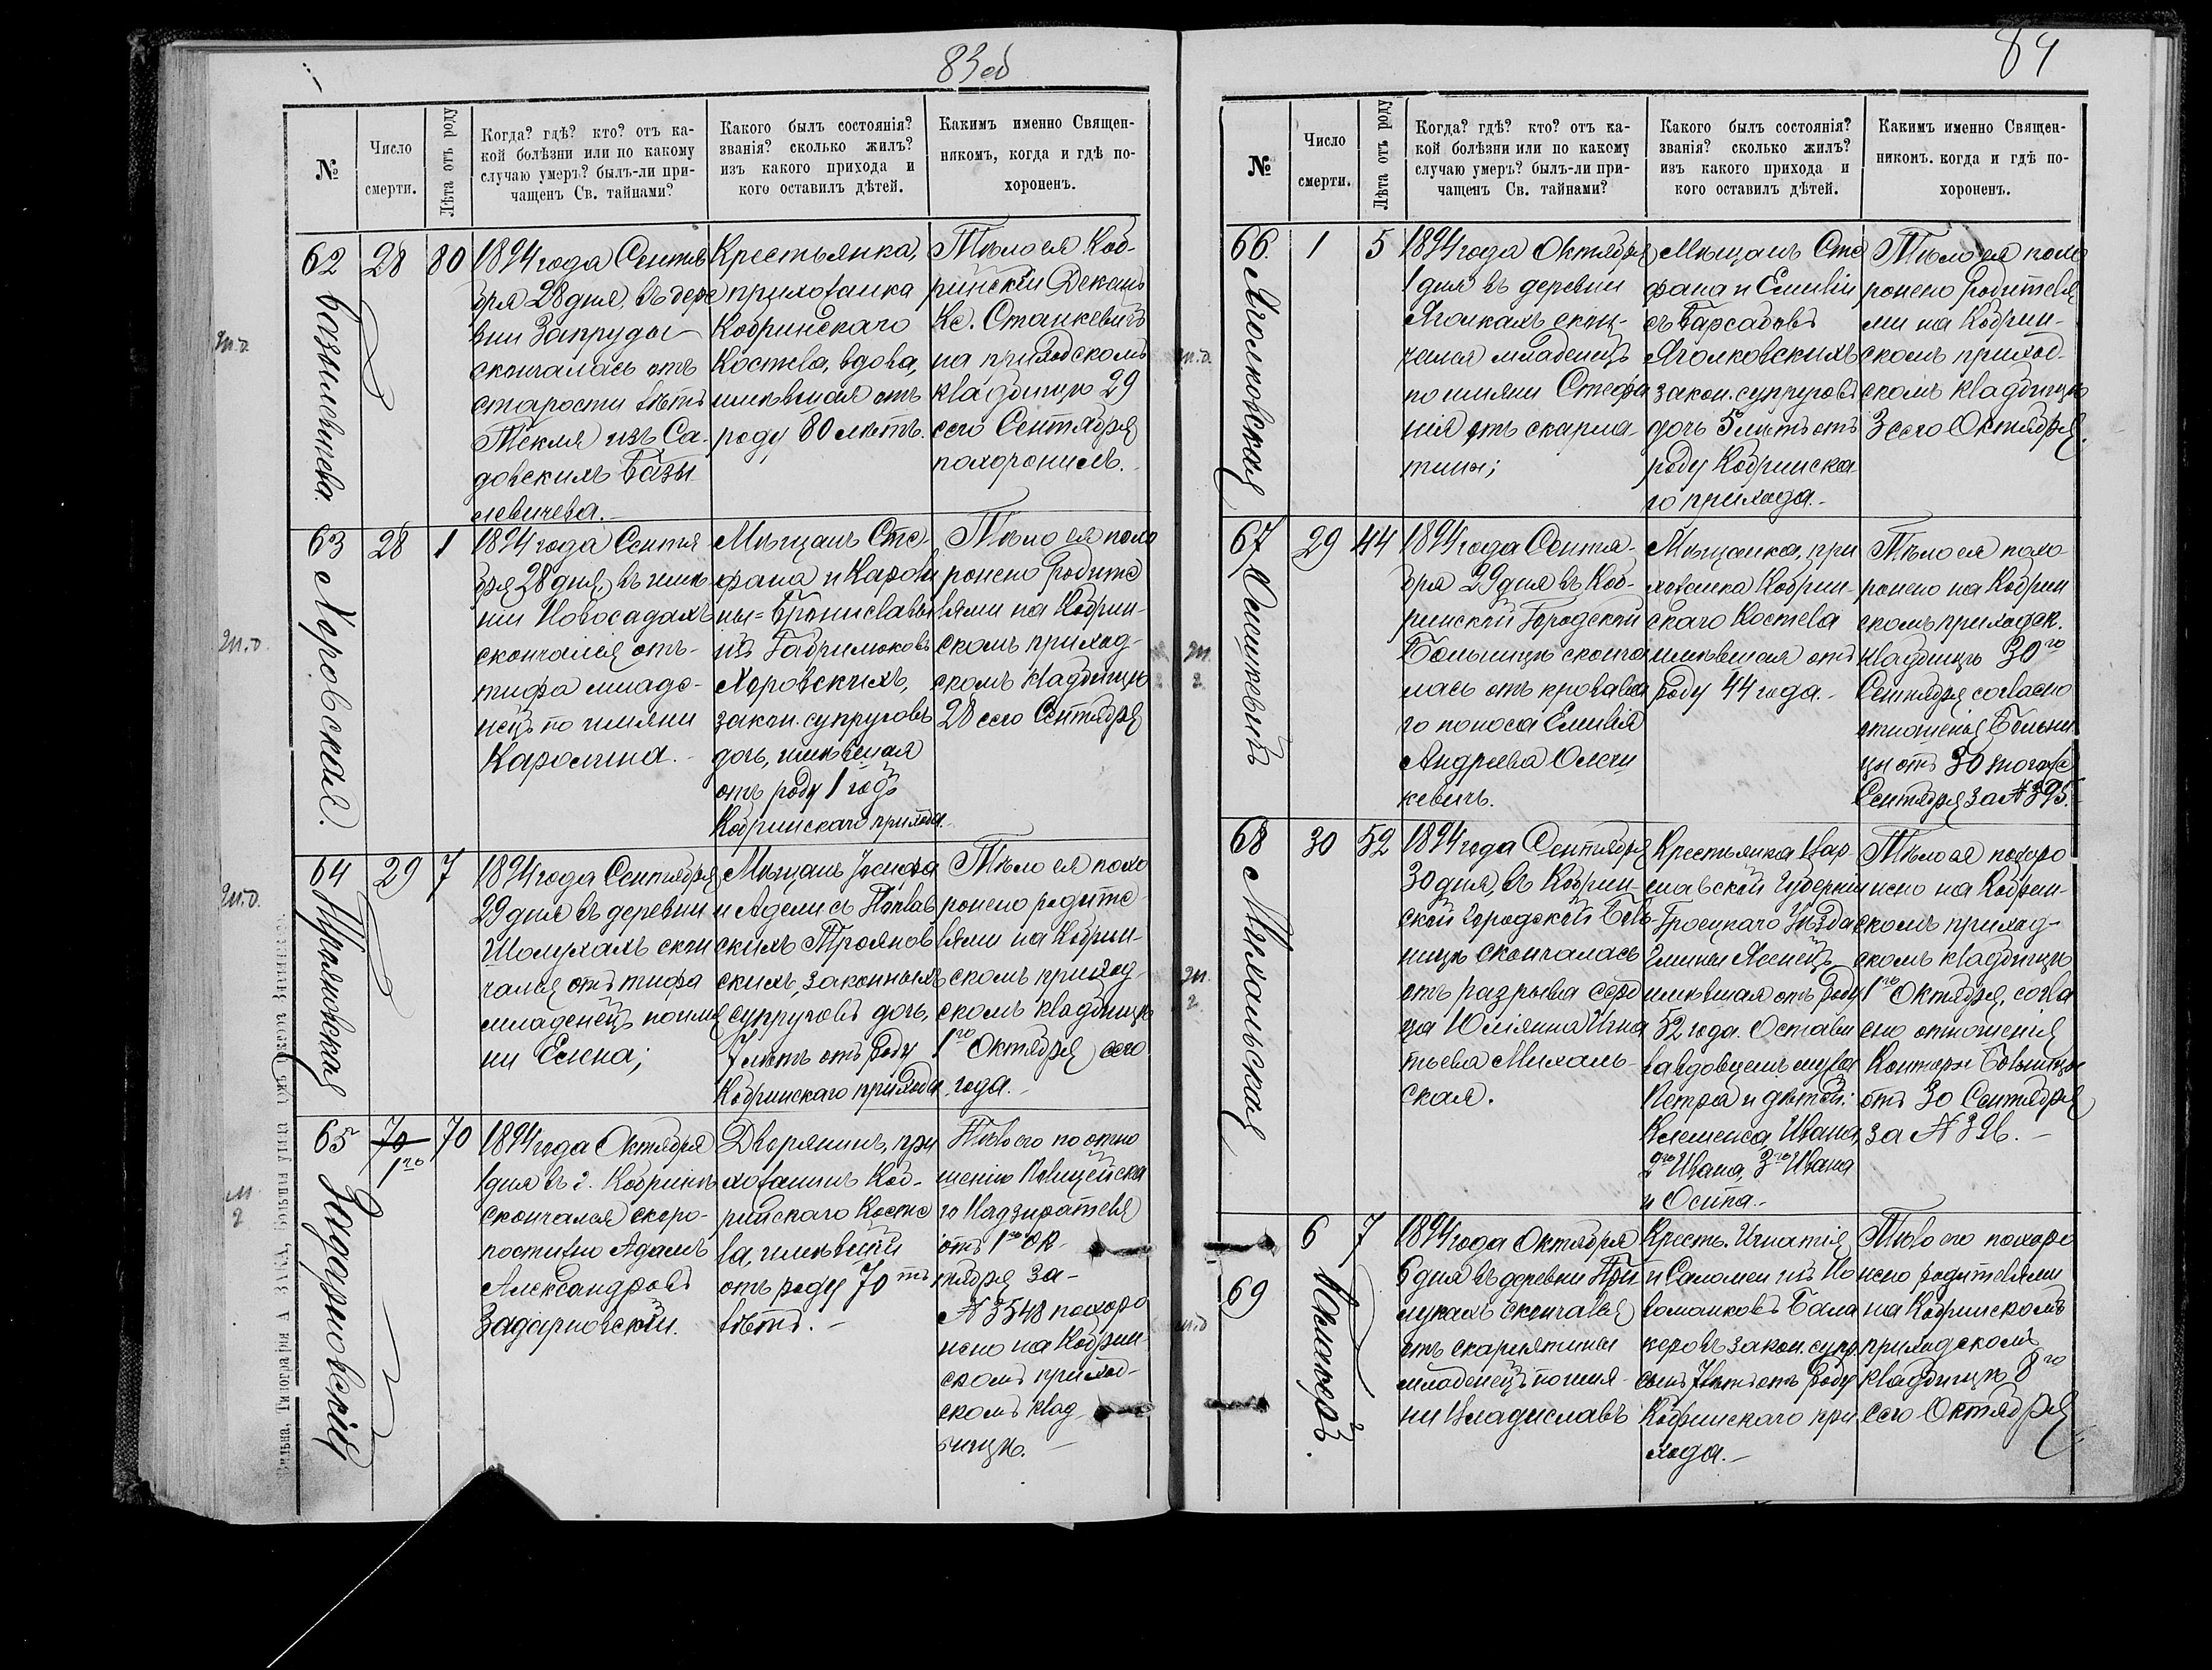 83 об
№
Число
смерти.
Лѣта отъ роду
Когда? гдѣ? кто? отъ ка-
кой болѣзни или по какому
случаю умеръ? былъ-ли при-
чащенъ Св. тайнами?
Какого былъ состоянія?
званія? сколько жилъ?
изъ какого прихода и
кого оставилъ дѣтей.
Какимъ именно Священ-
никомъ, когда и гдѣ по-
хороненъ.
62
Базылевичева.
28
80
1894 года Сентя
бря 28 дня, въ дере
вни Запруды
скончалась отъ
старости лѣтъ
Текля изъ Са-
довскихъ Базы
левичева.
Крестьянка,
прихожанка
Кобринскаго
Костела, вдова,
имѣвшая отъ
роду 80 лѣтъ.
Тѣло ея Коб-
ринскій Деканъ
Кс. Станкевичъ
на приходскомъ
кладбищѣ 29
сего Сентября
похоронилъ.
63
Хоровская.
28
1
1894 года Сентя
бря 28 дня, въ имѣ
ніи Новосадахъ
скончался отъ
тифа младе-
нецъ по имяни
Каролина.
Мѣщанъ Сте-
фана и Кароли
ны-Брониславы
изъ Габрилюковъ
Хоровскихъ,
закон. супруговъ
дочь, имѣвшая
отъ роду 1 годъ
Кобринскаго прихода.
Тѣло ея похо
ронено родите
лями на Кобрин-
скомъ приход-
скомъ кладбищѣ
28 сего Сентября
64
Трояновская
29
7
1894 года Сентября
29 дня въ деревни
Шолухахъ скон
чался отъ тифа
младенецъ по имя
ни Елена;
Мѣщанъ Іосифа
и Адели съ
скихъ Троянов
скихъ, законныхъ
супруговъ дочь,
7 лѣтъ отъ роду
Кобринскаго прихода
Тѣло ея похо
ронено родите-
лями на Кобрин-
скомъ приход-
скомъ кладбищѣ
1го Октября сего
года.
65
Задарновскій
70
1го
70
1894 года Октября
1 дня въ г. Кобринѣ
скончался скоро-
постижно Адамъ
Александровъ
Задарновскій.
Дворянинъ, при
хожанинъ Коб-
ринскаго Косте
ла, имѣвшій
отъ роду 70 ть
лѣтъ.
Тѣло его по отно
шенію Полицейска
го Надзирателя
отъ 1го Ок-
тября за
№ 3548 похоро
нено на Кобрин
скомъ приход-
скомъ клад-
бищѣ.
Вильна, Типографія
84
№
Число
смерти.
Лѣта отъ роду
Когда? гдѣ? кто? отъ ка-
кой болѣзни или по какому
случаю умеръ? былъ-ли при-
чащенъ Св. тайнами?
Какого былъ состоянія?
званія? сколько жилъ?
изъ какого прихода и
кого оставилъ дѣтей.
Какимъ именно Священ-
никомъ. когда и гдѣ по-
хороненъ.
66.
Яголковская
1
5
1894 года Октября
1 дня въ деревни
Яголкахъ скон-
чался младенецъ
по имяни Стефа
нія отъ скарла-
тины;
Мѣщанъ Сте
фана и Емиліи
съ Барсабовъ
Яголковскихъ
закон. супруговъ
дочь 5 лѣтъ отъ
роду Кобринска
го прихода.
Тѣло ея похо
ронено родителя
ми на Кобрин-
скомъ приход-
скомъ кладбищѣ
3 сего Октября.
67
Олешкевичъ
29
44
1894 года Сентя-
бря 29 дня въ Коб-
ринской Городской
Больницѣ сконча
лась отъ кроваво
го поноса Емилія
Андреева Олеш
кевичъ.
Мѣщанка, при
хожанка Кобрин-
скаго Костела
имѣвшая отъ
роду 44 года.
Тѣло ея похо
ронено на Кобрин
скомъ приходск.
кладбищѣ 30го
Сентября согласно
отношенія Больни
цы отъ 30 тогоже
Сентября за № 395.
68
Михальская
30
52
1894 года Сентября
30 дня, въ Кобрин-
ской городской Боль-
ницѣ скончалась
отъ разрыва серд
ца Юліянна Игна
тьева Михаль-
ская.
Крестьянка Вар-
шавской Губерніи
Гроецкаго Уѣзда
Гмины Ясенецъ
имѣвшая отъ роду
52 года. Остави
ла вдовцемъ мужа
Петра и дѣтей:
Клеменса, Ивана,
2го Ивана, 3го Ивана
и Осипа.
Тѣло ея похоро
нено на Кобрин-
скомъ приход-
скомъ кладбищѣ
1го Октября, согла
сно отношенія
Конторы Больницы
отъ 30 Сентября
за № 396.
69
6
7
1894 года Октября
6 дня въ деревни При
лукахъ скончался
отъ скарлятины
младенецъ по имя-
ни Владиславъ
Кресть. Игнатія
и Саломеи изъ Но
воманковъ Бала
керовъ закон. супр.
сынъ 7 лѣтъ отъ роду
Кобринскаго при
хода.
Тѣло его похоро
нено родителями
на Кобринскомъ
приходскомъ
кладбищѣ 8го
сего Октября